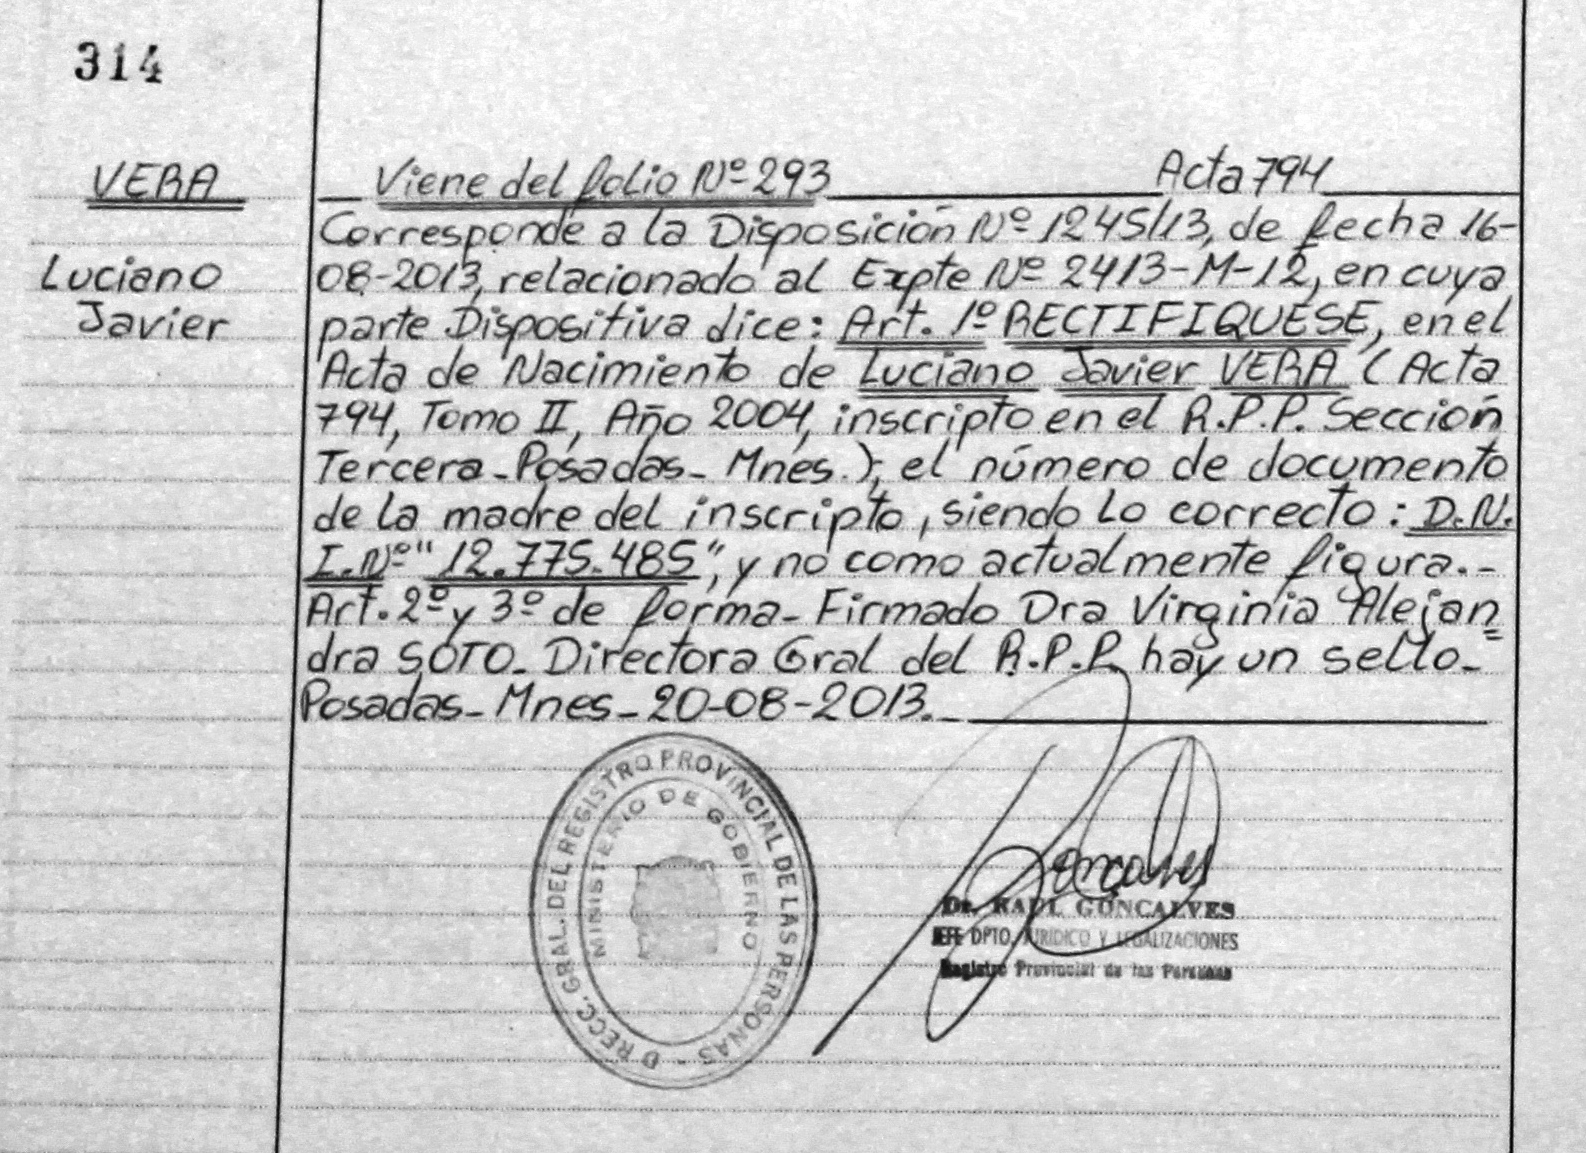 314
VERA
Luciano
Javier
Viene del folio Nº 293 Acta 794
Corresponde a la Disposición Nº 1245/13, de fecha 16-
08-2013, relacionado al Expte Nº 2413-M-12, en cuya
parte Dispositiva dice: Art. 1º RECTIFIQUESE, en el
Acta de Nacimiento de Luciano Javier VERA (Acta
794, Tomo II, Año 2004, inscripto en el R.P.P. Sección
Tercera-Posadas-Mnes.); el número de documento
de la madre del inscripto, siendo lo correcto: D.N.
I. Nº "12.775.485", y no como actualmente figura.-
Art. 2º y 3º de forma- Firmado Dra Virginia Alejan=
dra SOTO- Directora Gral del R.P.P. hay un sello-
Posadas- Mnes- 20-08-2013.-
DRECC. GRAL. DEL REGISTRO PROVINCIAL DE LAS PERSONAS -
MINISTERIO DE GOBIERNO
Goncalves
Dr. RAUL GONCALVES
JEFE DPTO. JURIDICO Y LEGALIZACIONES
Registro Provincial de las Personas